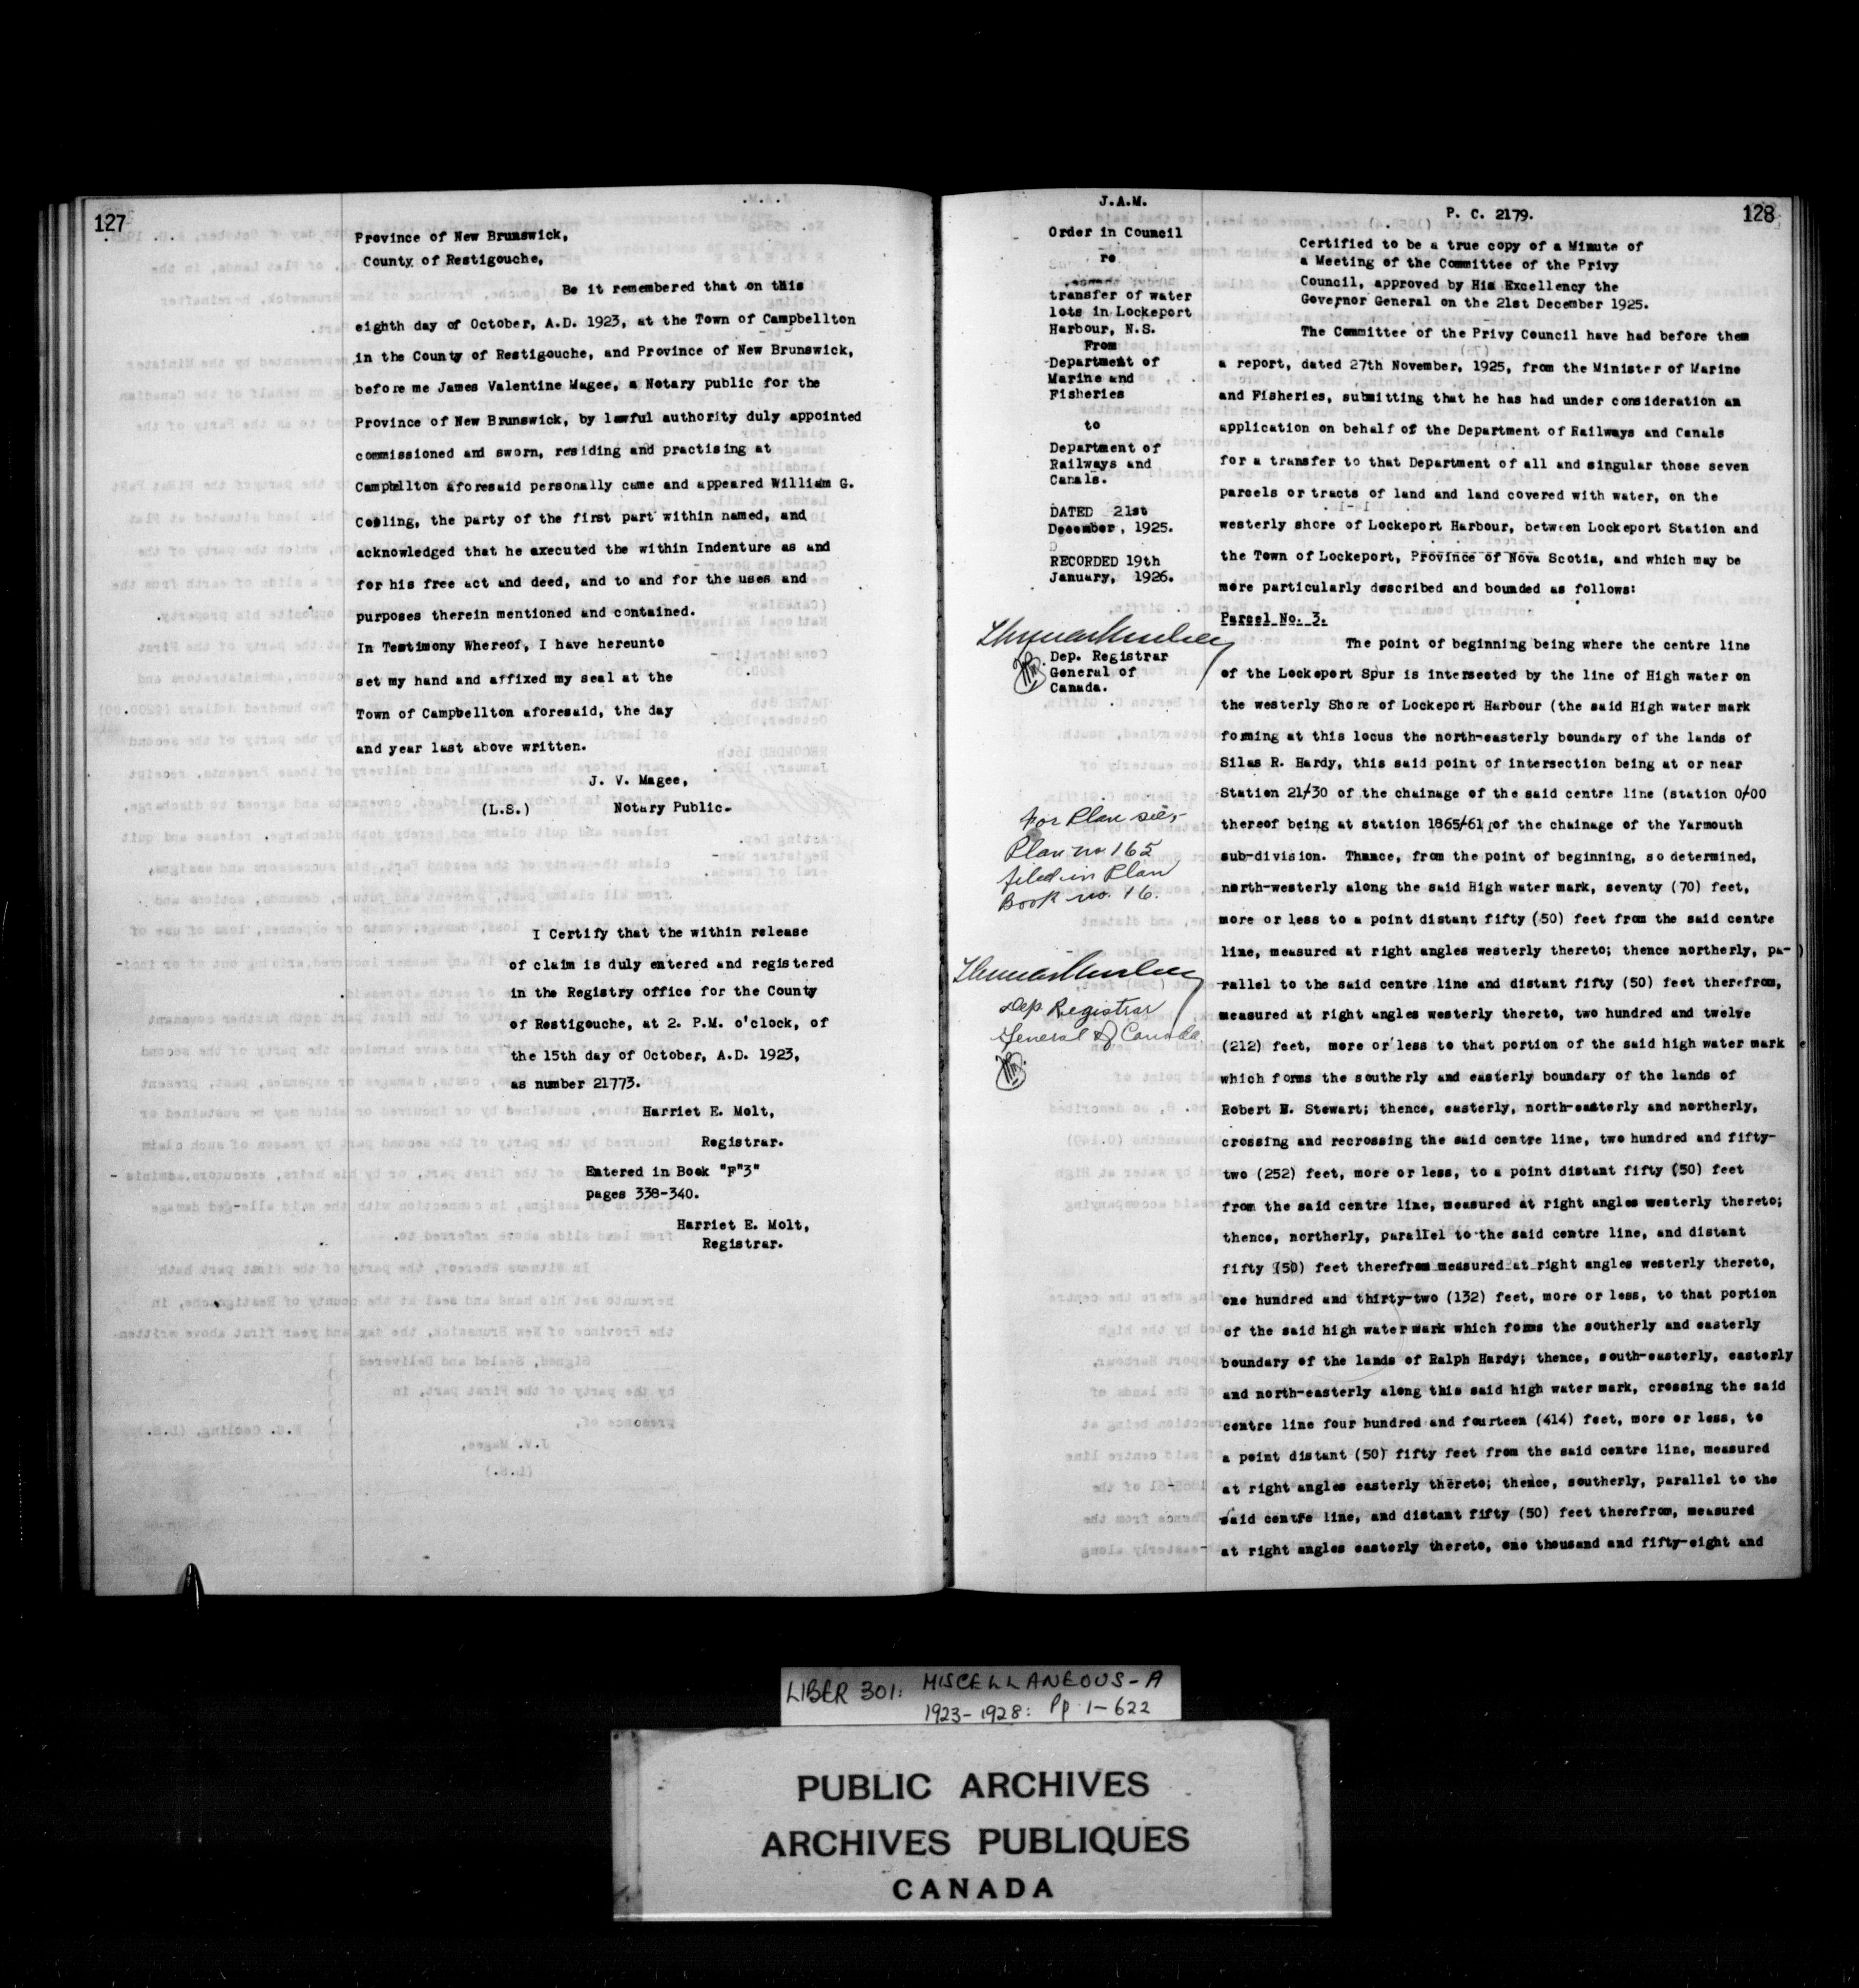 127
Province of New Brunswick,
County of Restigouche,
Be it remembered that on this
eighth day of October, A.D. 1923, at the Town of Campbellton
in the County of Restigouche, and Province of New Brunswick,
before me James Valentine Magee, a Notary public for the
Province of New Brunswick, by lawful authority duly appointed
commissioned and sworn, residing and practising at
Campbellton aforesaid personally came and appeared William G.
Cooling, the party of the first part within named, and
acknowledged that he executed the within Indenture as and
for his free act and deed, and to and for the uses and
purposes therein mentioned and contained.
In Testimony Whereof, I have hereunto
set my hand and affixed my seal at the
Town of Campbellton aforesaid, the day
and year last above written.
J. V. Magee,
(L.S.) Notary Public.
I Certify that the within release
of claim is duly entered and registered
in the Registry office for the County
of Restigouche, at 2. P.M. o'clock, of
the 15th day of October, A.D. 1923,
as number 21773.
Harriet E. Molt,
Registrar.
Entered in Book "F"3"
pages 338-340.
Harriet E. Molt,
Registrar.
J.A.M.
Order in Council
re
transfer of water
lots in Lockeport
Harbour, N.S.
From
Department of
Marine and
Fisheries
to
Department of
Railways and
Canals.
DATED 21st
December, 1925.
RECORDED 19th
January, 1926.
Dep. Registrar
General of
Canada.
For Plan see,-
Plan no 165
filed in Plan
Book no. 16.
Dep. Registrar
General of Canada.
128
P. C. 2179.
Certified to be a true copy of a Minute of
a Meeting of the Committee of the Privy
Council, approved by His Excellency the
Governor General on the 21st December 1925.
The Committee of the Privy Council have had before them
a report, dated 27th November, 1925, from the Minister of Marine
and Fisheries, submitting that he has had under consideration an
application on behalf of the Department of Railways and Canals
for a transfer to that Department of all and singular those seven
parcels or tracts of land and land covered with water, on the
westerly shore of Lockeport Harbour, between Lockeport Station and
the Town of Lockeport, Province of Nova Scotia, and which may be
more particularly described and bounded as follows:
Parcel No. 3.
The point of beginning being where the centre line
of the Lockeport Spur is intersected by the line of High water on
the westerly Shore of Lockeport Harbour (the said High water mark
forming at this locus the north-easterly boundary of the lands of
Silas R. Hardy, this said point of intersection being at or near
Station 21/30 of the chainage of the said centre line (station 0/00
thereof being at station 1865/61 of the chainage of the Yarmouth
sub-division. Thance, from the point of beginning, so determined,
north-westerly along the said High water mark, seventy (70) feet,
more or less to a point distant fifty (50) feet from the said centre
line, measured at right angles westerly thereto; thence northerly, pa-
rallel to the said centre line and distant fifty (50) feet therefrom,
measured at right angles westerly thereto, two hundred and twelve
(212) feet, more or less to that portion of the said high water mark
which forms the southerly and easterly boundary of the lands of
Robert B. Stewart; thence, easterly, north-easterly and northerly,
crossing and recrossing the said centre line, two hundred and fifty-
two (252) feet, more or less, to a point distant fifty (50) feet
from the said centre line, measured at right angles westerly thereto;
thence, northerly, parallel to the said centre line, and distant
fifty (50) feet therefrom measured at right angles westerly thereto,
one hundred and thirty-two (132) feet, more or less, to that portion
of the said high water mark which forms the southerly and easterly
boundary of the lands of Ralph Hardy; thence, south-easterly, easterly
and north-easterly along this said high water mark, crossing the said
centre line four hundred and fourteen (414) feet, more or less, to
a point distant (50) fifty feet from the said centre line, measured
at right angles easterly thereto; thence, southerly, parallel to the
said centre line, and distant fifty (50) feet therefrom, measured
at right angles easterly thereto, one thousand and fifty-eight and
LIBER 301: MISCELLANEOUS-A
1923-1928: Pp 1-622
PUBLIC ARCHIVES
ARCHIVES PUBLIQUES
CANADA